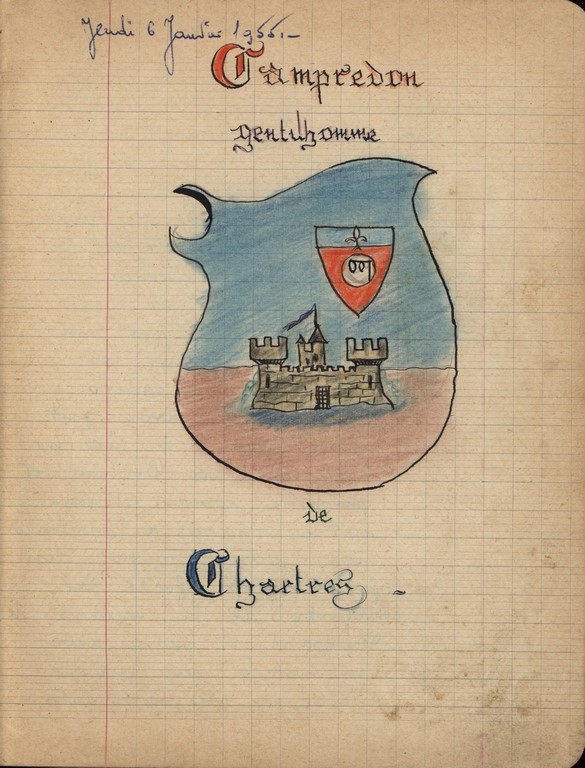 Jeudi 6 Janvier 1955.-
Campredon
gentilhomme
de
Chartres -